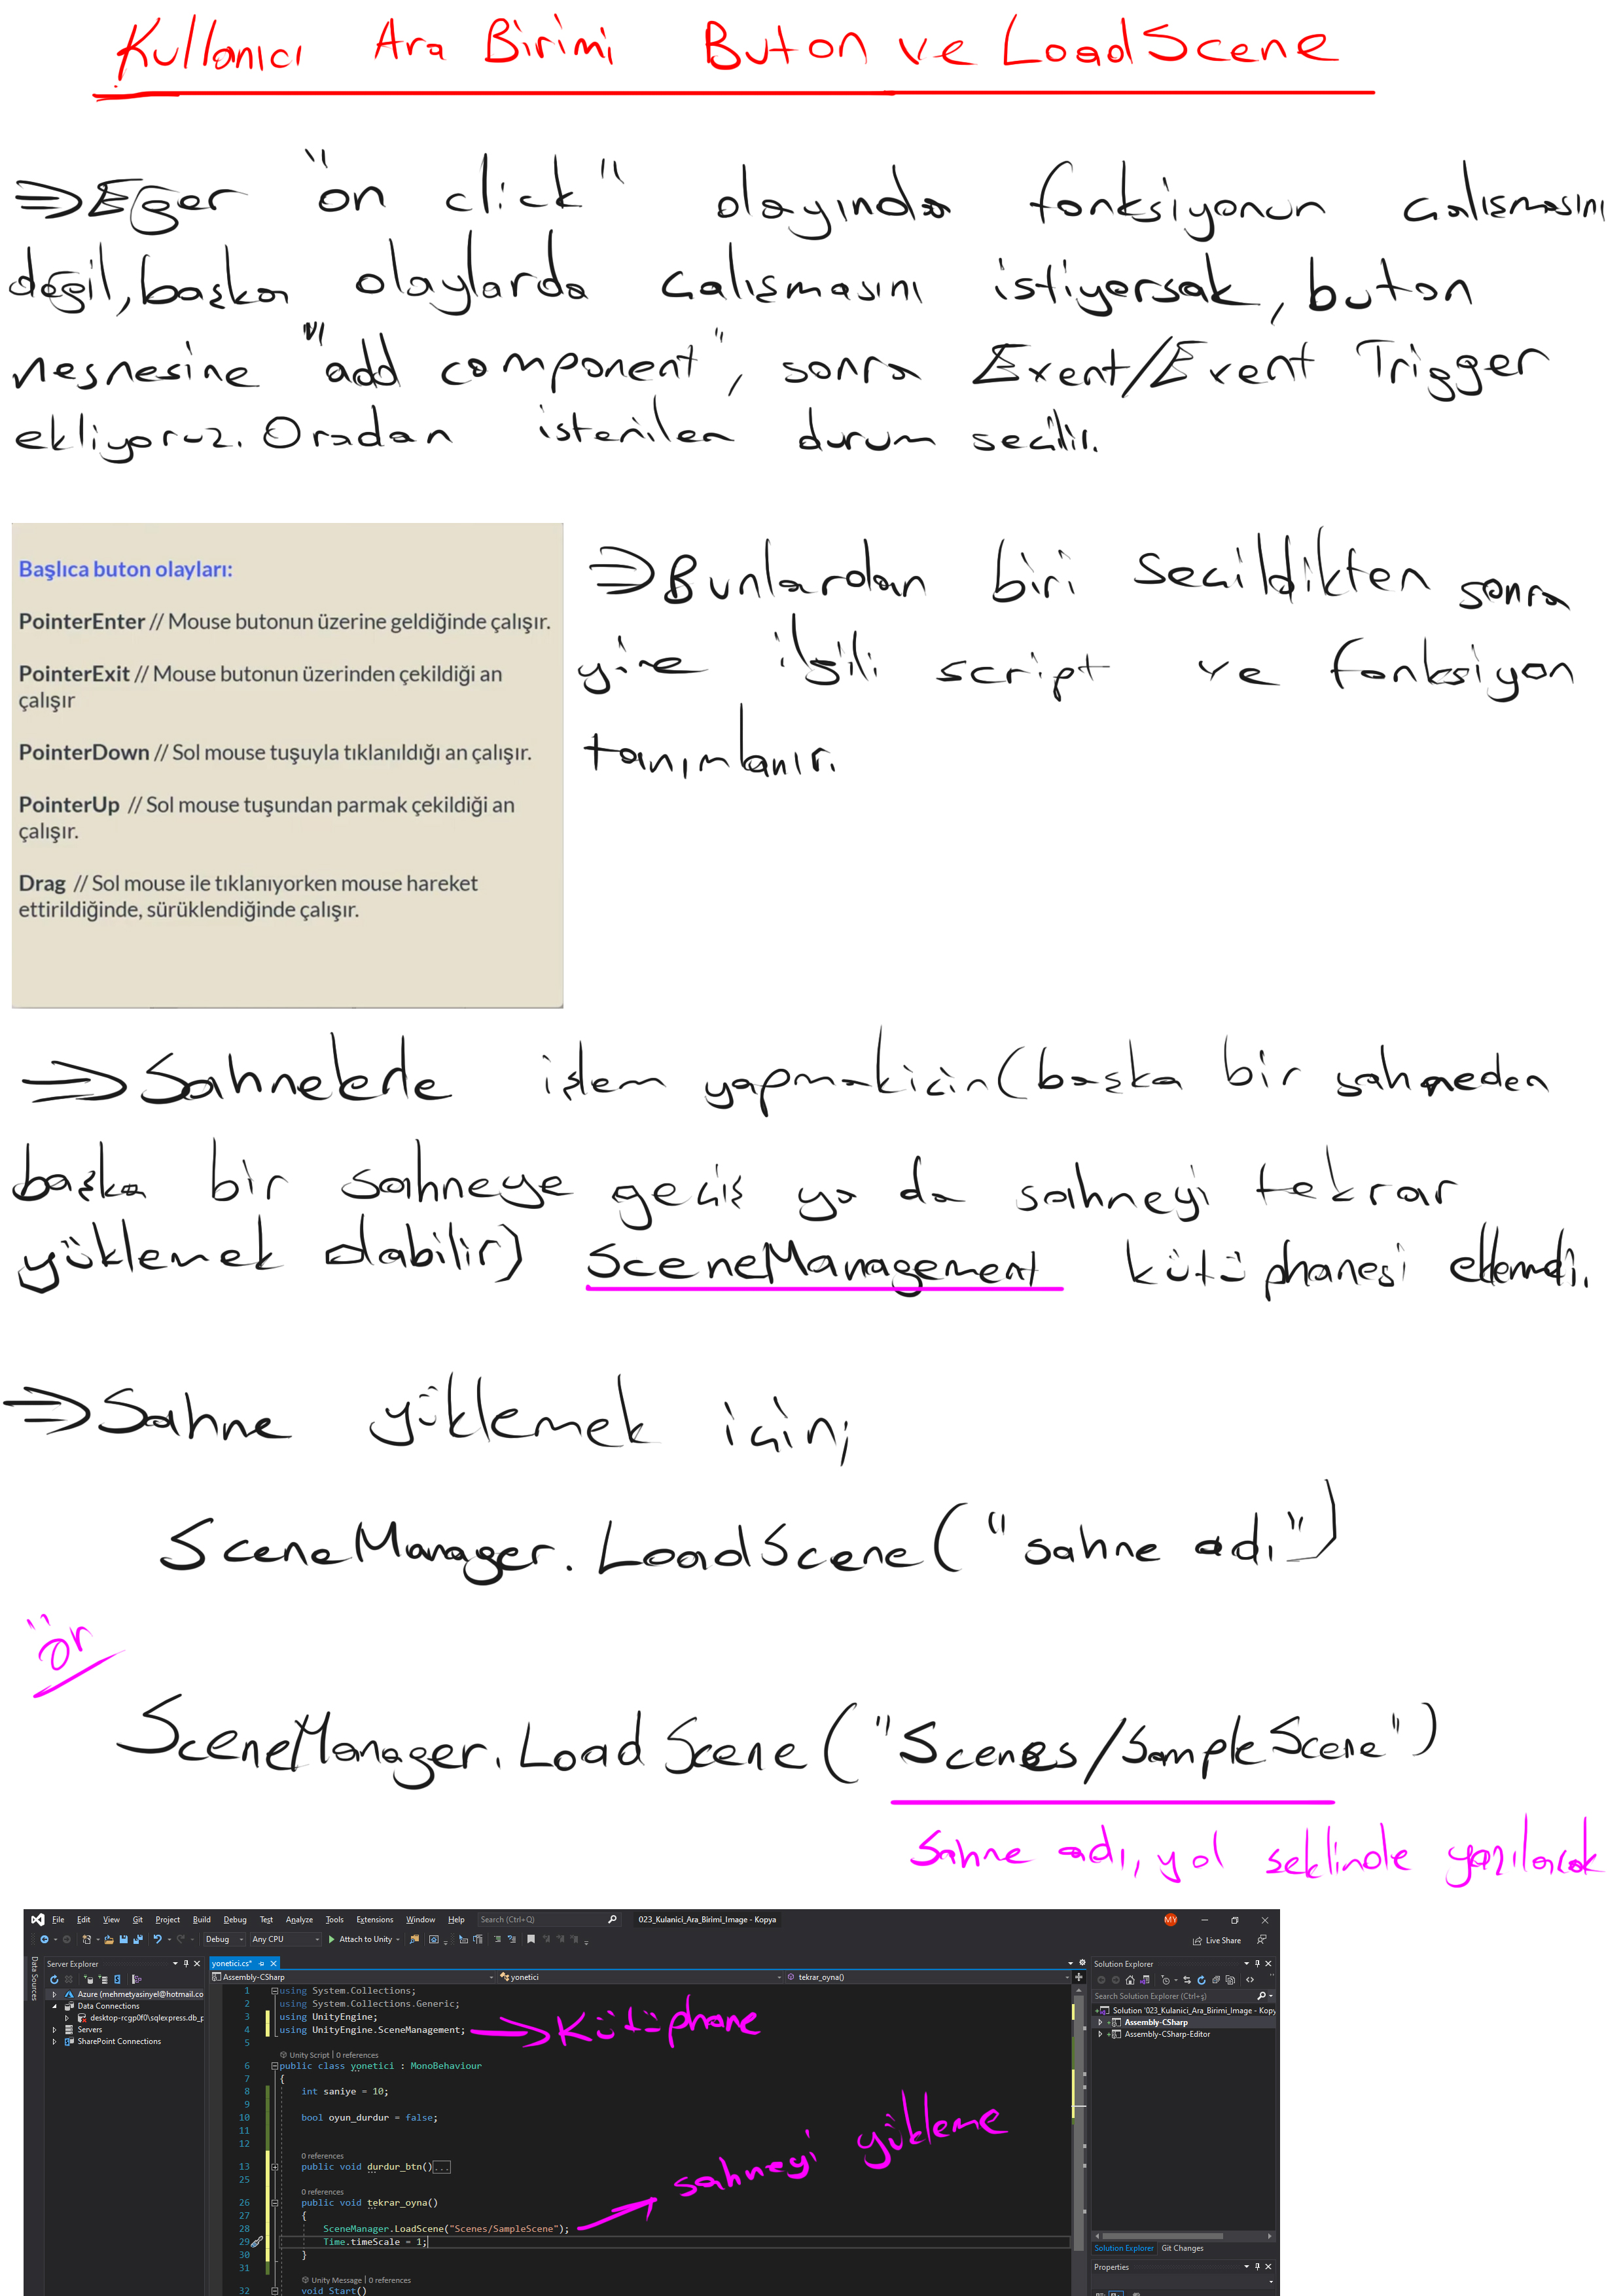 Kullanıcı Ara Birimi Buton ve LoadScene
⇒Eğer "on click" olayında fonksiyonun calışmasını
değil,başka olaylarda calışmasını istiyorsak, buton
nesnesine "add component", sonra Event/Event Trigger
ekliyoruz. Oradan istenilen durum secilir.
Başlıca buton olayları:
PointerEnter // Mouse butonun üzerine geldiğinde çalışır.
PointerExit // Mouse butonun üzerinden çekildiği an
çalışır
PointerDown // Sol mouse tuşuyla tıklanıldığı an çalışır.
PointerUp // Sol mouse tuşundan parmak çekildiği an
çalışır.
Drag // Sol mouse ile tıklanıyorken mouse hareket
ettirildiğinde, sürüklendiğinde çalışır.
⇒Bunlardan biri secildikten sonra
yine ilgili script ve fonksiyon
tanımlanır.
⇒Sahnelerle işlem yapmak icin(başka bir sahneden
başka bir sahneye geçiş ya da sahneyi tekrar
yüklemek olabilir) SceneManagement kütüphanesi
⇒Sahne yüklemek için;
SceneManager.LoadScene("sahne adı")
ör
SceneManager.LoadScene("Scenes/SampleScene")
Sahne adı, yol seklinde yazılacak
File Edit View Git Project Build Debug Test Analyze Tools Extensions Window Help Search (Ctrl+Q) 023_Kulanici_Ara_Birimi_Image - Kopya MY
Debug Any CPU Attach to Unity Live Share
Data Sources
Server Explorer
Azure (mehmetyasinyel@hotmail.co
Data Connections
desktop-rcgp0f0\sqlexpress.db_p
Servers
SharePoint Connections
yonetici.cs*
Assembly-CSharp yonetici tekrar_oyna()
1 using System.Collections;
2 using System.Collections.Generic;
3 using UnityEngine;
4 using UnityEngine.SceneManagement; → Kütüphane
5
Unity Script | 0 references
6 public class yonetici : MonoBehaviour
7 {
8 int saniye = 10;
9
10 bool oyun_durdur = false;
11
12
0 references
13 public void durdur_btn()...
25
0 references
26 public void tekrar_oyna()
27 {
28 SceneManager.LoadScene("Scenes/SampleScene"); → sahneyi yükleme
29 Time.timeScale = 1;
30 }
31
Unity Message | 0 references
32 void Start()
Solution Explorer
Search Solution Explorer (Ctrl+ş)
Solution '023_Kulanici_Ara_Birimi_Image - Kopy
Assembly-CSharp
Assembly-CSharp-Editor
Solution Explorer Git Changes
Properties